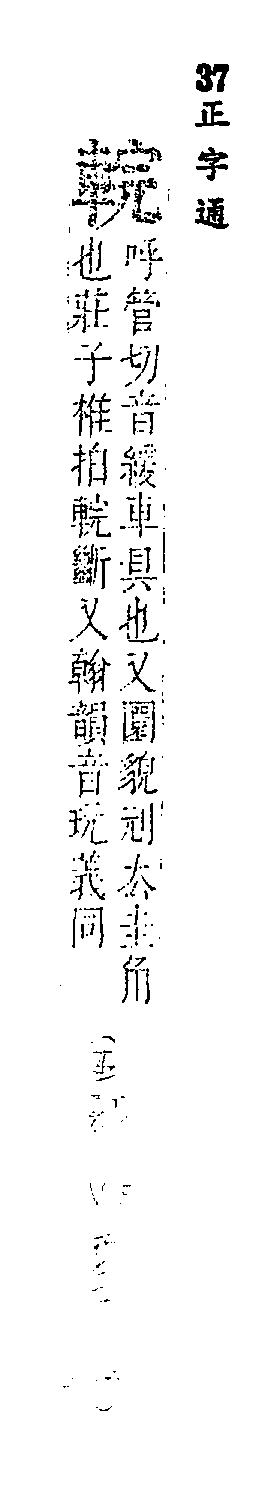 37正字通
輐
呼管切音緩車具也又圜貌刓去圭角
也莊子椎拍輐斷又翰韻音玩義同